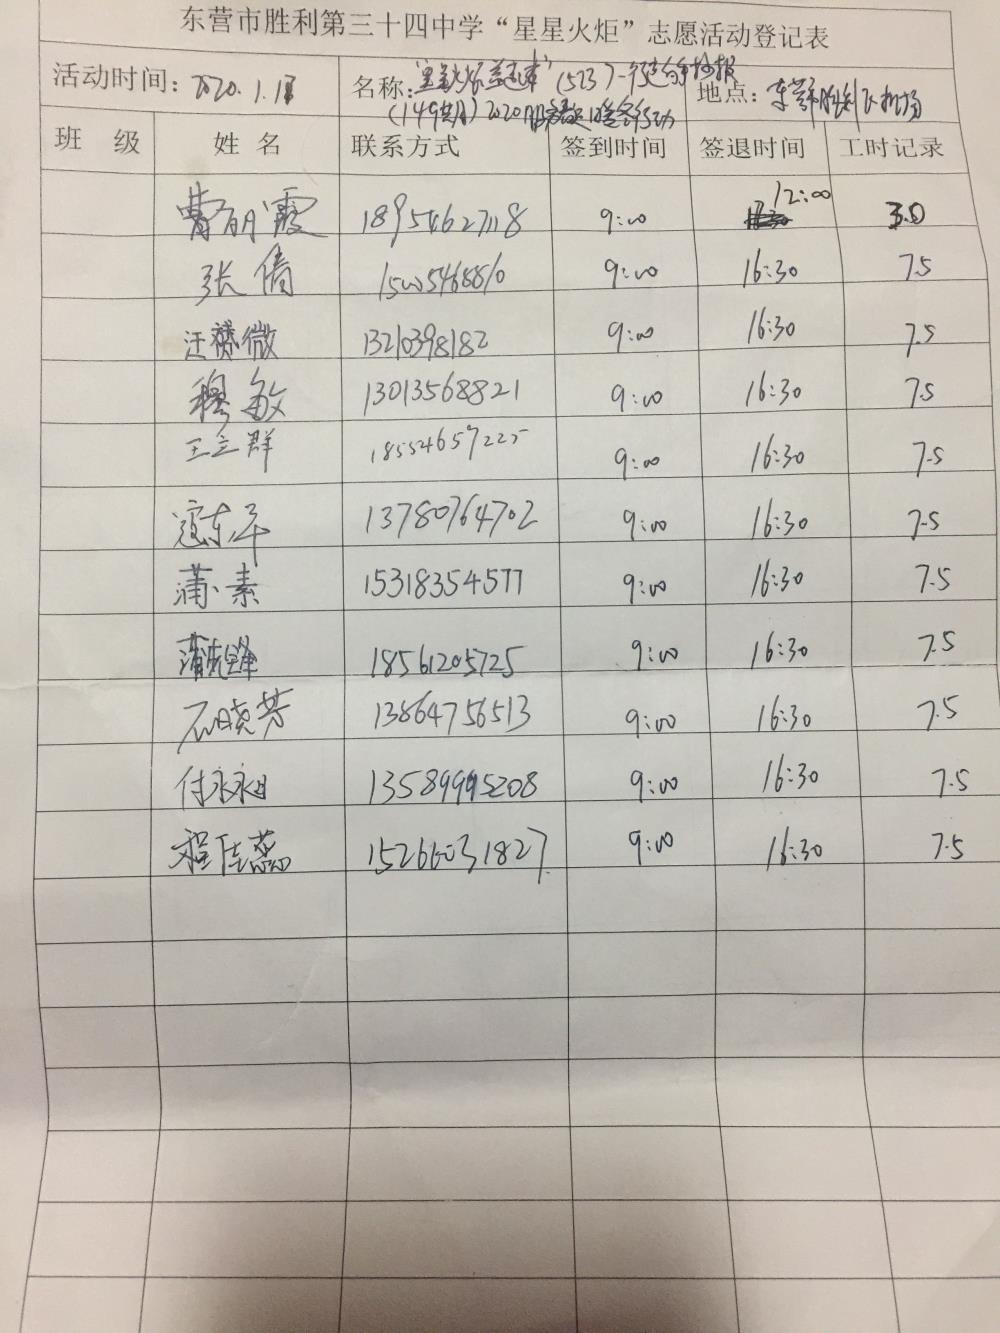 东营市胜利第三十四中学“星星火炬”志愿活动登记表
活动时间：2020.1.18 名称：“星星火炬 (523) 地点：东营胜利飞机场
(149期) 2020 暖冬行动
班 级 姓 名 联系方式 签到时间 签退时间 工时记录
曹丽霞 18954627118 9:00 12:00 3.0
张倩 15005468810 9:00 16:30 7.5
汪赟微 13210398182 9:00 16:30 7.5
穆敏 13013568821 9:00 16:30 7.5
王立群 18554657225 9:00 16:30 7.5
寇东平 13780764702 9:00 16:30 7.5
蒲素 15318354577 9:00 16:30 7.5
蒲先锋 18561205725 9:00 16:30 7.5
石晓芳 13864756513 9:00 16:30 7.5
付永旭 13589995208 9:00 16:30 7.5
程佳蕊 15266031827 9:00 16:30 7.5